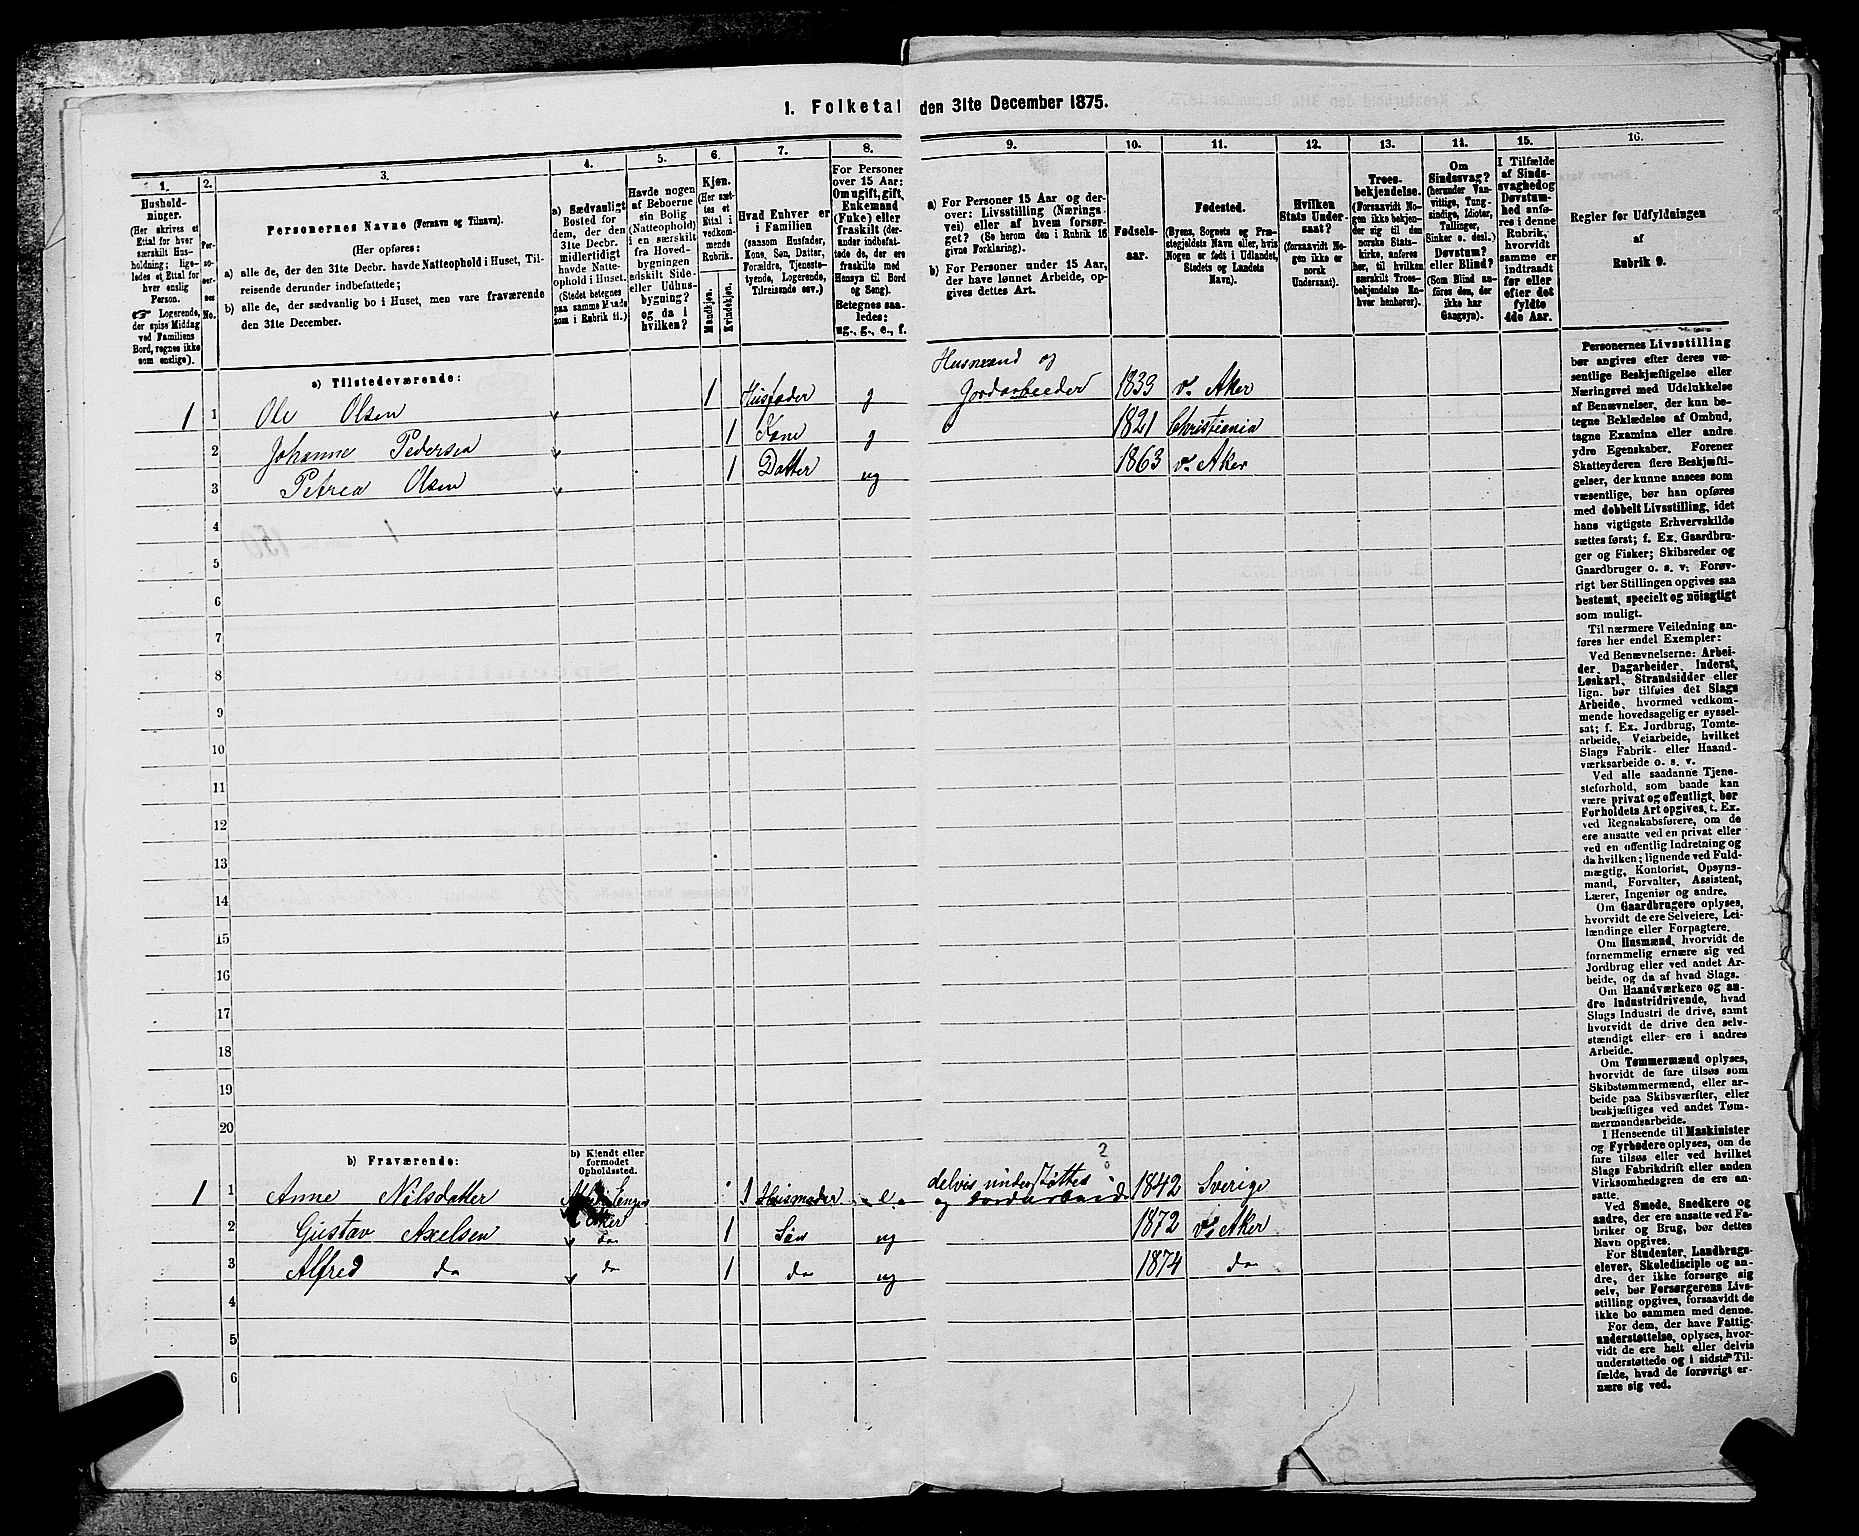 1. Folketal den 31te December 1875.
1.
Hushold-
ninger.
(Her skrives et
Ettal for hver
særskilt Hus-
holdning; lige-
ledes et Ettal for
hver enslig
Person.
☞ Logerende,
der spise Middag
ved Familiens
Bord, regnes ikke
som enslige).
2.
Per-
so-
ner-
nes
No.
3.
Personernes Navne (Fornavn og Tilnavn).
(Her opføres:
a) alle de, der den 31te Decbr. havde Natteophold i Huset, Til-
reisende derunder indbefattede;
b) alle de, der sædvanlig bo i Huset, men vare fraværende
den 31te December.
4.
a) Sædvanligt
Bosted for
dem, der den
31te Decbr.
midlertidigt
havde Natte-
ophold i Huset.
(Stedet betegnes
paa samme Maade
som i Rubrik 11.)
5.
Havde nogen
af Beboerne
sin Bolig
(Natteophold)
i en særskilt
fra Hoved-
bygningen
adskilt Side-
eller Udhus-
bygning?
og da i
hvilken?
6.
Kjøn.
(Her sæt-
tes et
Ettal i
vedkom-
mende
Rubrik.
Mandkjøn.
Kvindekjøn.
7.
Hvad Enhver er
i Familien
(saasom Husfader,
Kone, Søn, Datter,
Forældre, Tjeneste-
tyende, Logerende,
Tilreisende osv.)
8.
For Personer
over 15 Aar:
Om ugift, gift,
Enkemand
(Enke) eller
fraskilt (der-
under indbefat-
tede de, der ere
fraskilte med
Hensyn til Bord
og Seng).
Betegnes saa-
ledes:
ug., g., e., f.
9.
a) For Personer 15 Aar og der-
over: Livsstilling (Nærings-
vei) eller af hvem forsør-
get? (Se herom den i Rubrik 16
givne Forklaring).
b) For Personer under 15 Aar,
der have lønnet Arbeide, op-
gives dettes Art.
10.
Fødsels-
aar.
11.
Fødested.
(Byens, Sognets og Præ-
stegjeldets Navn eller, hvis
Nogen er født i Udlandet,
Stedets og Landets
Navn).
12.
Hvilken
Stats Under-
saat?
(forsaavidt No-
gen ikke er
norsk
Undersaat).
13.
Troes-
bekjendelse.
(Forsaavidt No-
gen ikke bekjen-
der sig til den
norske Stats-
kirke, anføres
her, til hvilken
særskilt Troes-
bekjendelse En-
hver henhører).
14.
Om
Sindssvag?
(herunder Van-
vittige, Tung-
sindige, Idioter,
Tullinger,
Sinker o. desl.)
Døvstum?
eller Blind?
(Som Blind an-
føres den, der
ikke har
Gangsyn).
15.
I Tilfælde
af Sinds-
svaghed og
Døvstum-
hed anfø-
res i denne
Rubrik,
hvorvidt
samme er
indtraadt
før eller
efter det
fyldte
4de Aar.
16.
Regler for Udfyldningen
af
Rubrik 9.
a) Tilstedeværende:
Husmand og
1 1 Ole Olsen 1 Husfader g Jordarbeider 1833 v. Aker
2 Johanne Pedersen 1 Kone g 1821 Christiania
3 Petrea Olsen 1 Datter ug 1863 v. Aker
4
5
6
7
8
9
10
11
12
13
14
15
16
17
18
19
20
b) Fraværende:
b) Kjendt eller
formodet
Opholdssted.
?
1 1 Anne Nilsdatter Aker 1 Husmoder e. delvis understøttes og Jordarbeide 1842 Sverige
2 Gustav Axelsen do 1 Søn ug 1872 v. Aker
3 Alfred do do 1 do ug 1874 do
4
5
6
Personernes Livsstilling
bør angives efter deres væ-
sentlige Beskjæftigelse eller
Næringsvei med Udelukkelse
af Benævnelser, der kun be-
tegne Beklædelse af Ombud,
tagne Examina eller andre
ydre Egenskaber. Forener
Skatteyderen flere Beskjæfti-
gelser, der kunne ansees som
væsentlige, bør han opføres
med dobbelt Livsstilling, idet
hans vigtigste Erhvervskilde
sættes først; f. Ex. Gaardbru-
ger og Fisker; Skibsreder og
Gaardbruger o. s. v. Forøv-
rigt bør Stillingen opgives saa
bestemt, specielt og nöiagtigt
som muligt.
Til nærmere Veiledning an-
føres her endel Exempler:
Ved Benævnelserne: Arbei-
der, Dagarbeider, Inderst,
Løskarl, Strandsidder eller
lign. bør tilføies det Slags
Arbeide, hvormed vedkom-
mende hovedsagelig er syssel-
sat; f. Ex. Jordbrug, Tomte-
arbeide, Veiarbeide, hvilket
Slags Fabrik- eller Haand-
værksarbeide o. s. v.
Ved alle saadanne Tjene-
steforhold, som baade kan
være privat og offentligt, bør
Forholdets Art opgives, t. Ex.
ved Regnskabsførere, om de
ere ansatte ved en privat eller
ved en offentlig Indretning og
da hvilken; lignende ved Fuld-
mægtig, Kontorist, Opsyns-
mand, Forvalter, Assistent,
Lærer, Ingeniør og andre.
Om Gaardbrugere oplyses,
hvorvidt de ere Selveiere, Lei-
lændinge eller Forpagtere.
Om Husmænd, hvorvidt de
fornemmelig ernære sig ved
Jordbrug eller ved andet Ar-
beide, og da af hvad Slags.
Om Haandværkere og an-
dre Industridrivende, hvad
Slags Industri de drive, samt
hvorvidt de drive den selv-
stændigt eller ere i andres
Arbeide.
Om Tømmermænd oplyses,
hvorvidt de fare tilsøs som
Skibstømmermænd, eller ar-
beide paa Skibsværfter, eller
beskjæftiges ved andet Tøm-
mermandsarbeide.
I Henseende til Maskinister
og Fyrbødere oplyses, om de
fare tilsøs eller ved hvilket
Slags Fabrikdrift eller anden
Virksomhedsgren de ere an-
satte.
Ved Smede, Snedkere og
andre, der ere ansatte ved Fa-
briker og Brug, bør dettes
Navn opgives.
For Studenter, Landbrugs-
elever, Skoledisciple og an-
dre, der ikke forsørge sig
selv, bør Forsørgerens Livs-
stilling opgives, forsaavidt de
ikke bo sammen med denne.
For dem, der have Fattig-
understøttelse, oplyses, hvor-
vidt de ere helt eller delvis
understøttede og i sidste Til-
fælde, hvad de forøvrigt er-
nære sig ved.